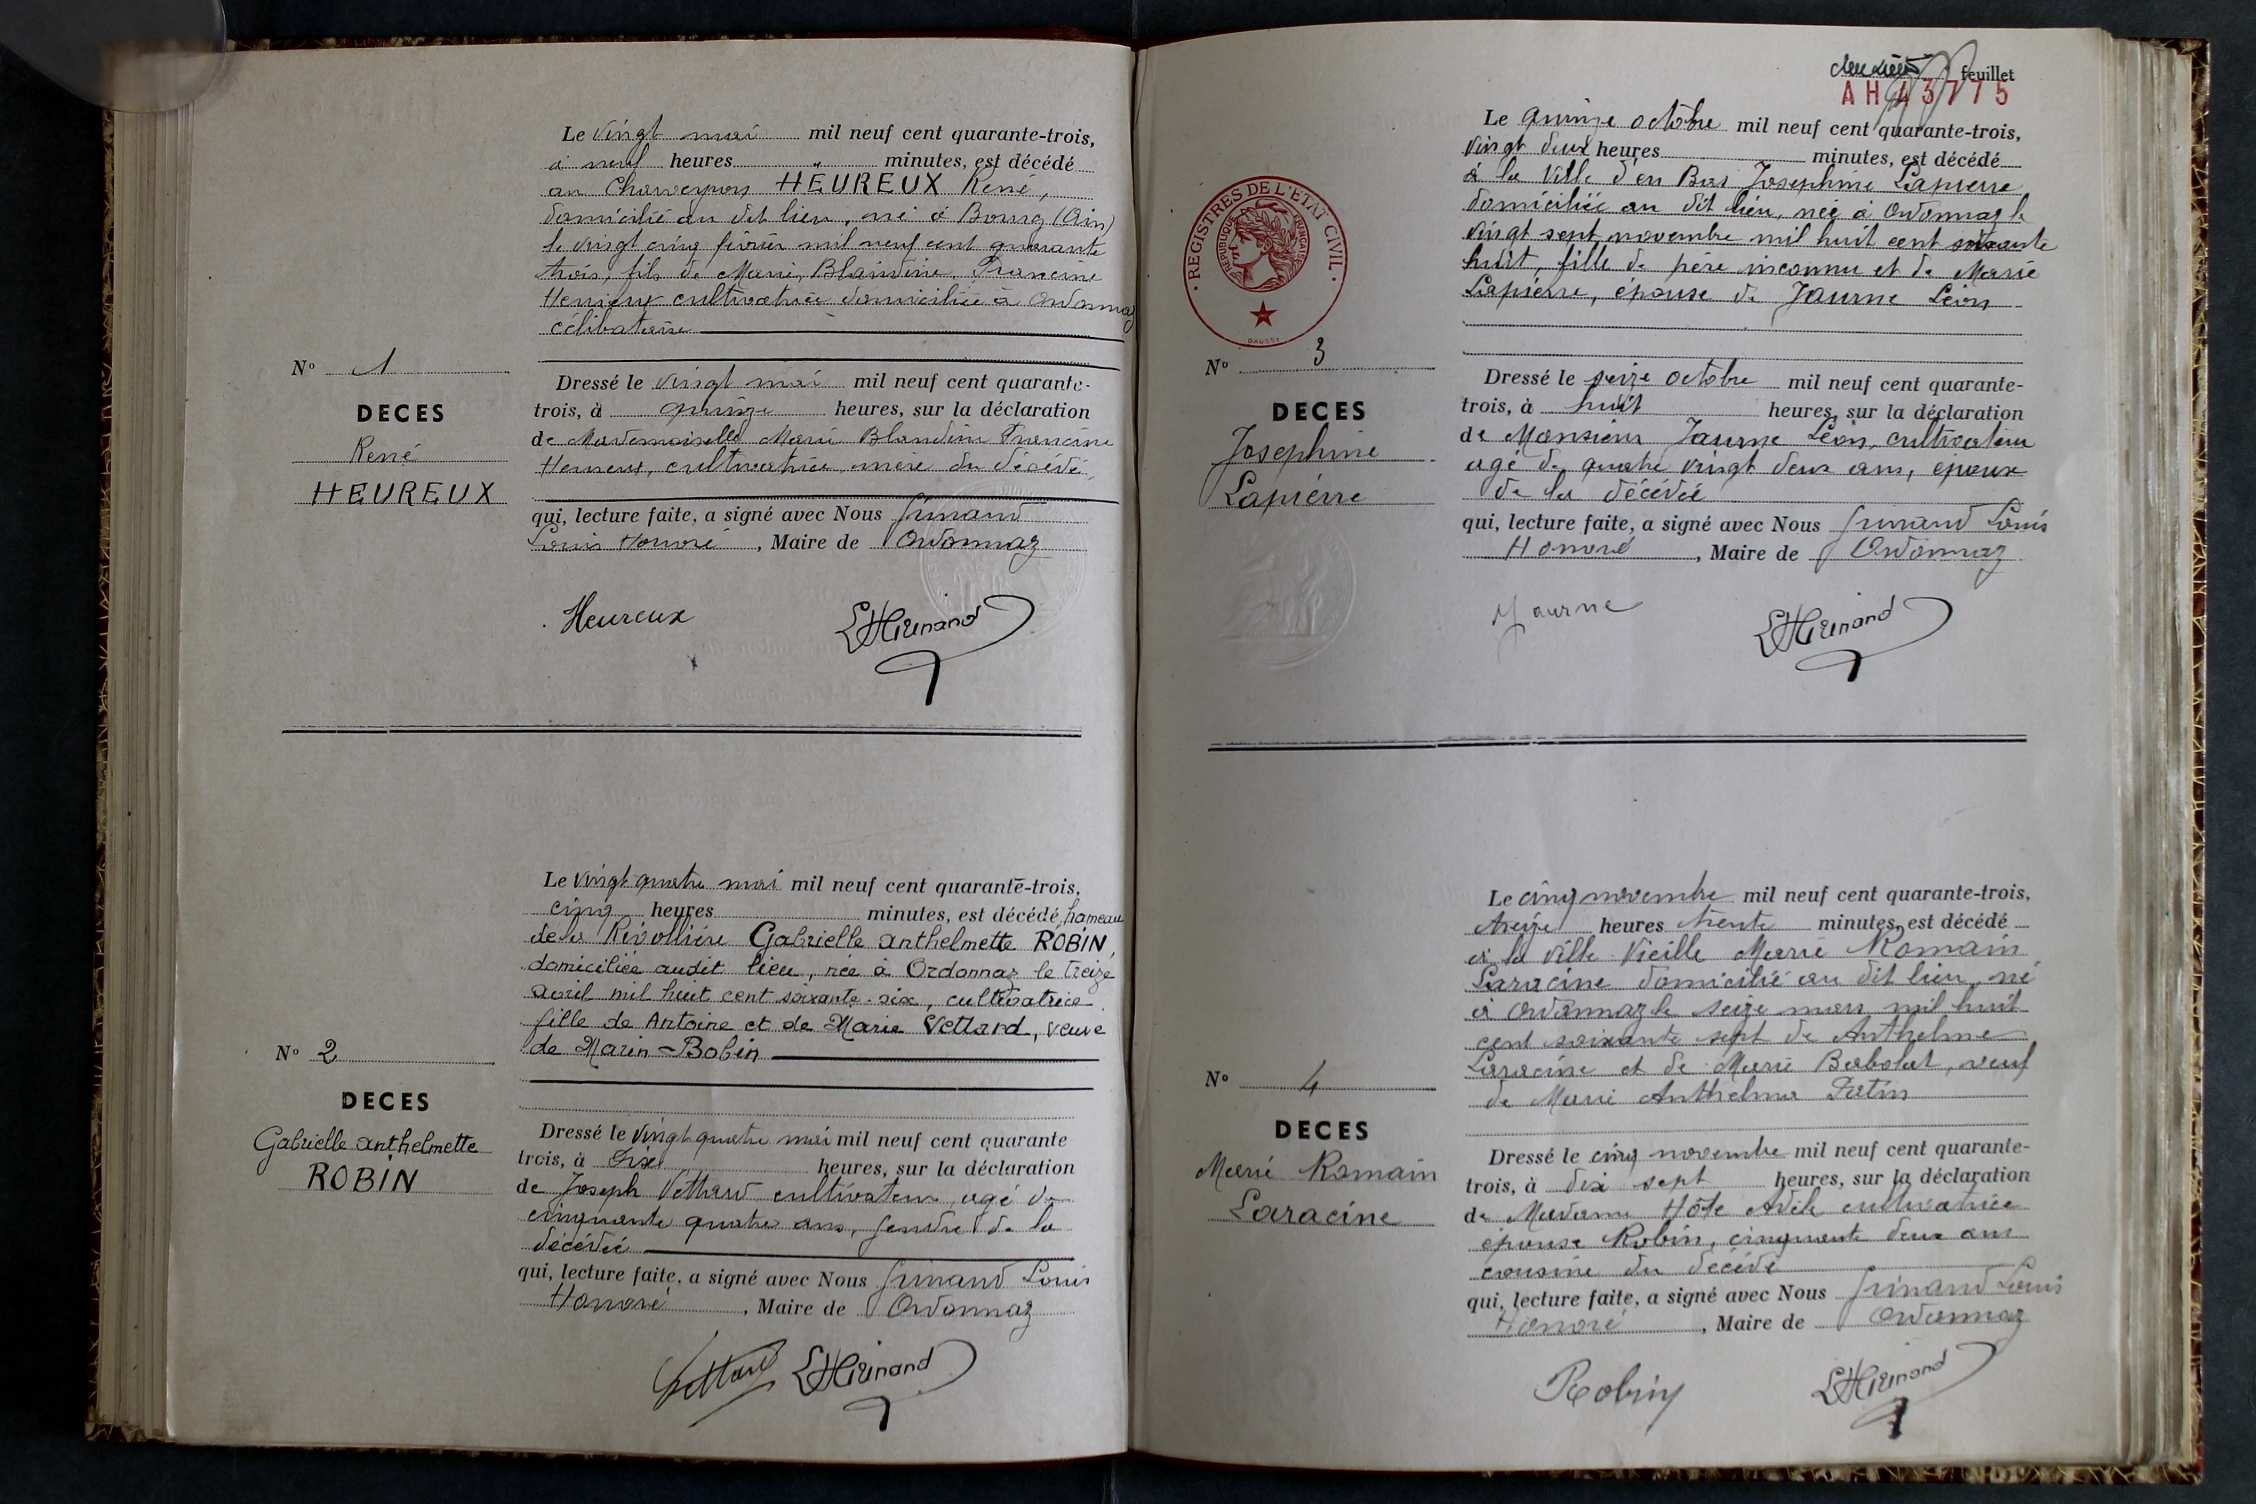 Le vingt mai mil neuf cent quarante-trois,
à neuf heures " minutes, est décédé
au Charveyron HEUREUX René,
domicilié au dit lieu, né à Bourg (Ain)
le vingt cinq février mil neuf cent quarante
trois, fils de Marie, Blandine, Francine
Heureux cultivatrice domiciliée à Ordonnaz
célibataire
Nº 1
DECES
René
HEUREUX
Dressé le vingt mai mil neuf cent quarante-
trois, à quinze heures, sur la déclaration
de Mademoiselle Marie Blandine Francine
Heureux, cultivatrice, mère du décédé
qui, lecture faite, a signé avec Nous Grinand
Louis Honoré, Maire de Ordonnaz
Heureux LHGrinand
Le vingt quatre mai mil neuf cent quarante-trois,
cinq heures minutes, est décédé hameau
de la Rivollière Gabrielle anthelmette ROBIN,
domiciliée audit lieu, née à Ordonnaz le treize
avril mil huit cent soixante-six, cultivatrice
fille de Antoine et de Marie Vettard, veuve
de Marin-Bobin
Nº 2
DECES
Gabrielle anthelmette
ROBIN
Dressé le vingt quatre mai mil neuf cent quarante
trois, à dix heures, sur la déclaration
de Joseph Vettard cultivateur, agé de
cinquante quatre ans, gendre de la
décédée
qui, lecture faite, a signé avec Nous Grinand Louis
Honoré, Maire de Ordonnaz
Vettard LHGrinand
deuxième feuillet
AH43775
Le quinze octobre mil neuf cent quarante-trois,
vingt deux heures minutes, est décédé
à la Ville d'en Bas Josephine Lapierre
domiciliée au dit lieu, née à Ordonnaz le
vingt sept novembre mil huit cent soixante
huit, fille de père inconnu et de Marie
Lapierre, épouse de Jaurne Léon
REGISTRES DE L'ETAT CIVIL
REPUBLIQUE FRANÇAISE
DAUSSY
Nº 3
DECES
Josephine
Lapierre
Dressé le seize octobre mil neuf cent quarante-
trois, à huit heures, sur la déclaration
de Monsieur Jaurne Léon, cultivateur
agé de quatre vingt deux ans, époux
de la décédée
qui, lecture faite, a signé avec Nous Grinand Louis
Honoré, Maire de Ordonnaz
Jaurne LHGrinand
Le cinq novembre mil neuf cent quarante-trois,
treize heures trente minutes, est décédé
à la Ville Vieille Marie Romain
Laracine domicilié au dit lieu, né
à Ordonnaz le seize mars mil huit
cent soixante sept de Anthelme
Laracine et de Marie Babolat, veuf
de Marie Anthelma Fatin
Nº 4
DECES
Marie Romain
Laracine
Dressé le cinq novembre mil neuf cent quarante-
trois, à dix sept heures, sur la déclaration
de Madame Hôte Adèle cultivatrice
épouse Robin, cinquante deux ans
cousine du décédé
qui, lecture faite, a signé avec Nous Grinand Louis
Honoré, Maire de Ordonnaz
Robin LHGrinand